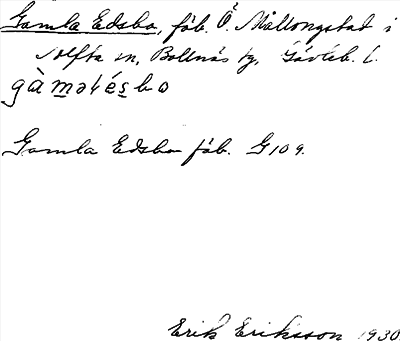 Gamla Edsbo, fäb. Ö. Mållongstad i
Alfta sn, Bollnäs tg, Gävleb. l.
gàm̲əlés̲bo
Gamla Edsbo fäb. G109.
Erik Eriksson 1930